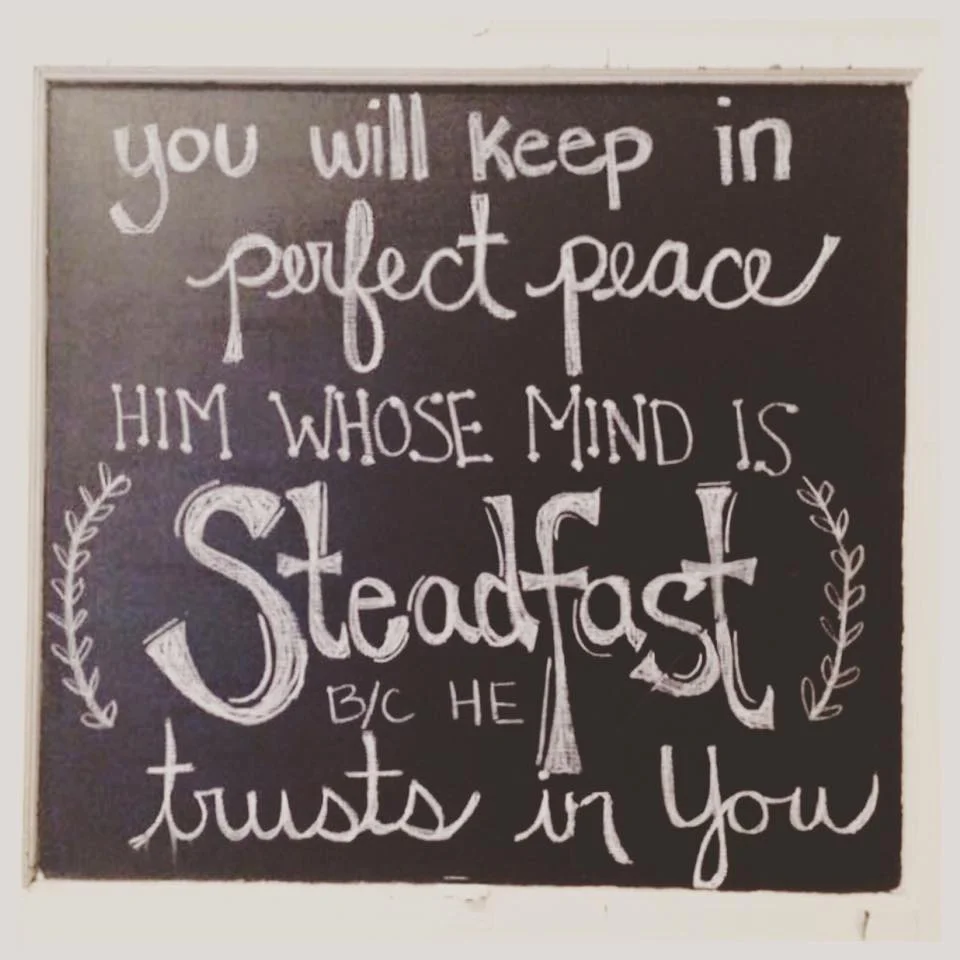 you will keep in
perfect peace
HIM WHOSE MIND IS
Steadfast
B/C HE
trusts in You